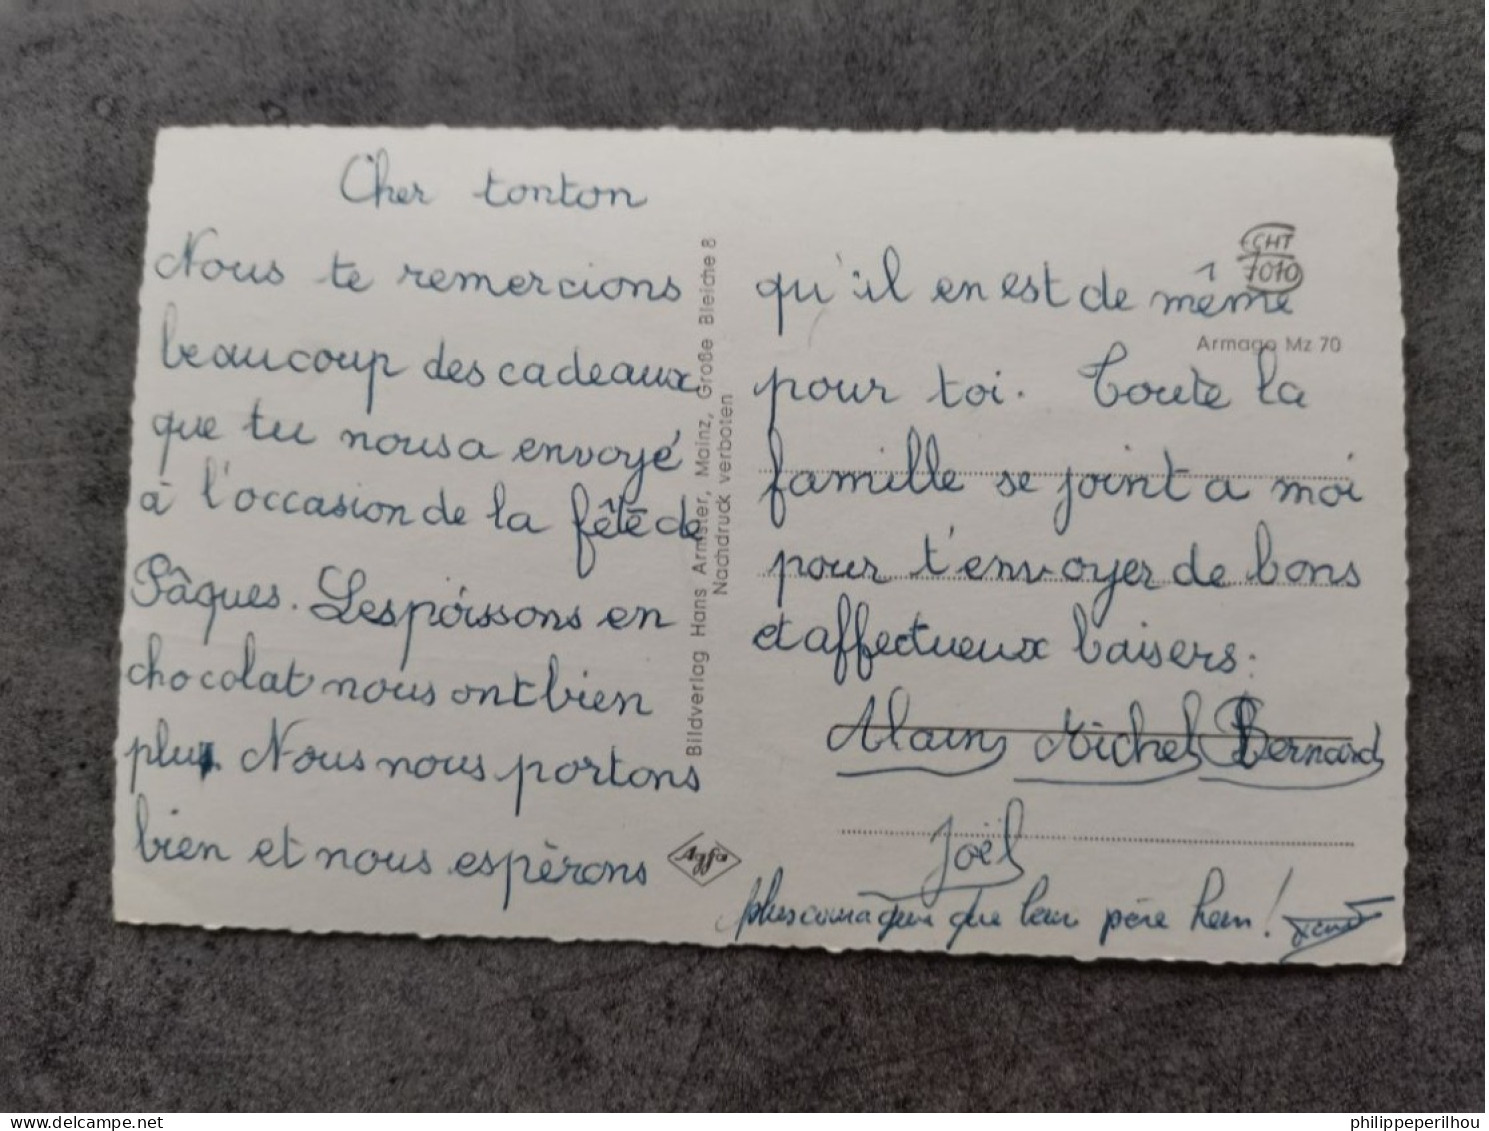 Cher tonton
Nous te remercions
beaucoup des cadeaux
que tu nous a envoyé
à l'occasion de la fête de
Pâques. Les poissons en
chocolat nous ont bien
plus. Nous nous portons
bien et nous espèrons
Bildverlag Hans Armster, Mainz, Große Bleiche 8
Nachdruck verboten
Agfa
CHT
1 7010
Armago Mz 70
qu'il en est de même
pour toi. Toute la
famille se joint a moi
pour t'envoyer de bons
et affectueux baisers:
Alain Michel Bernard
Joël
plus courageux que leur père hein!
philippeperilhou